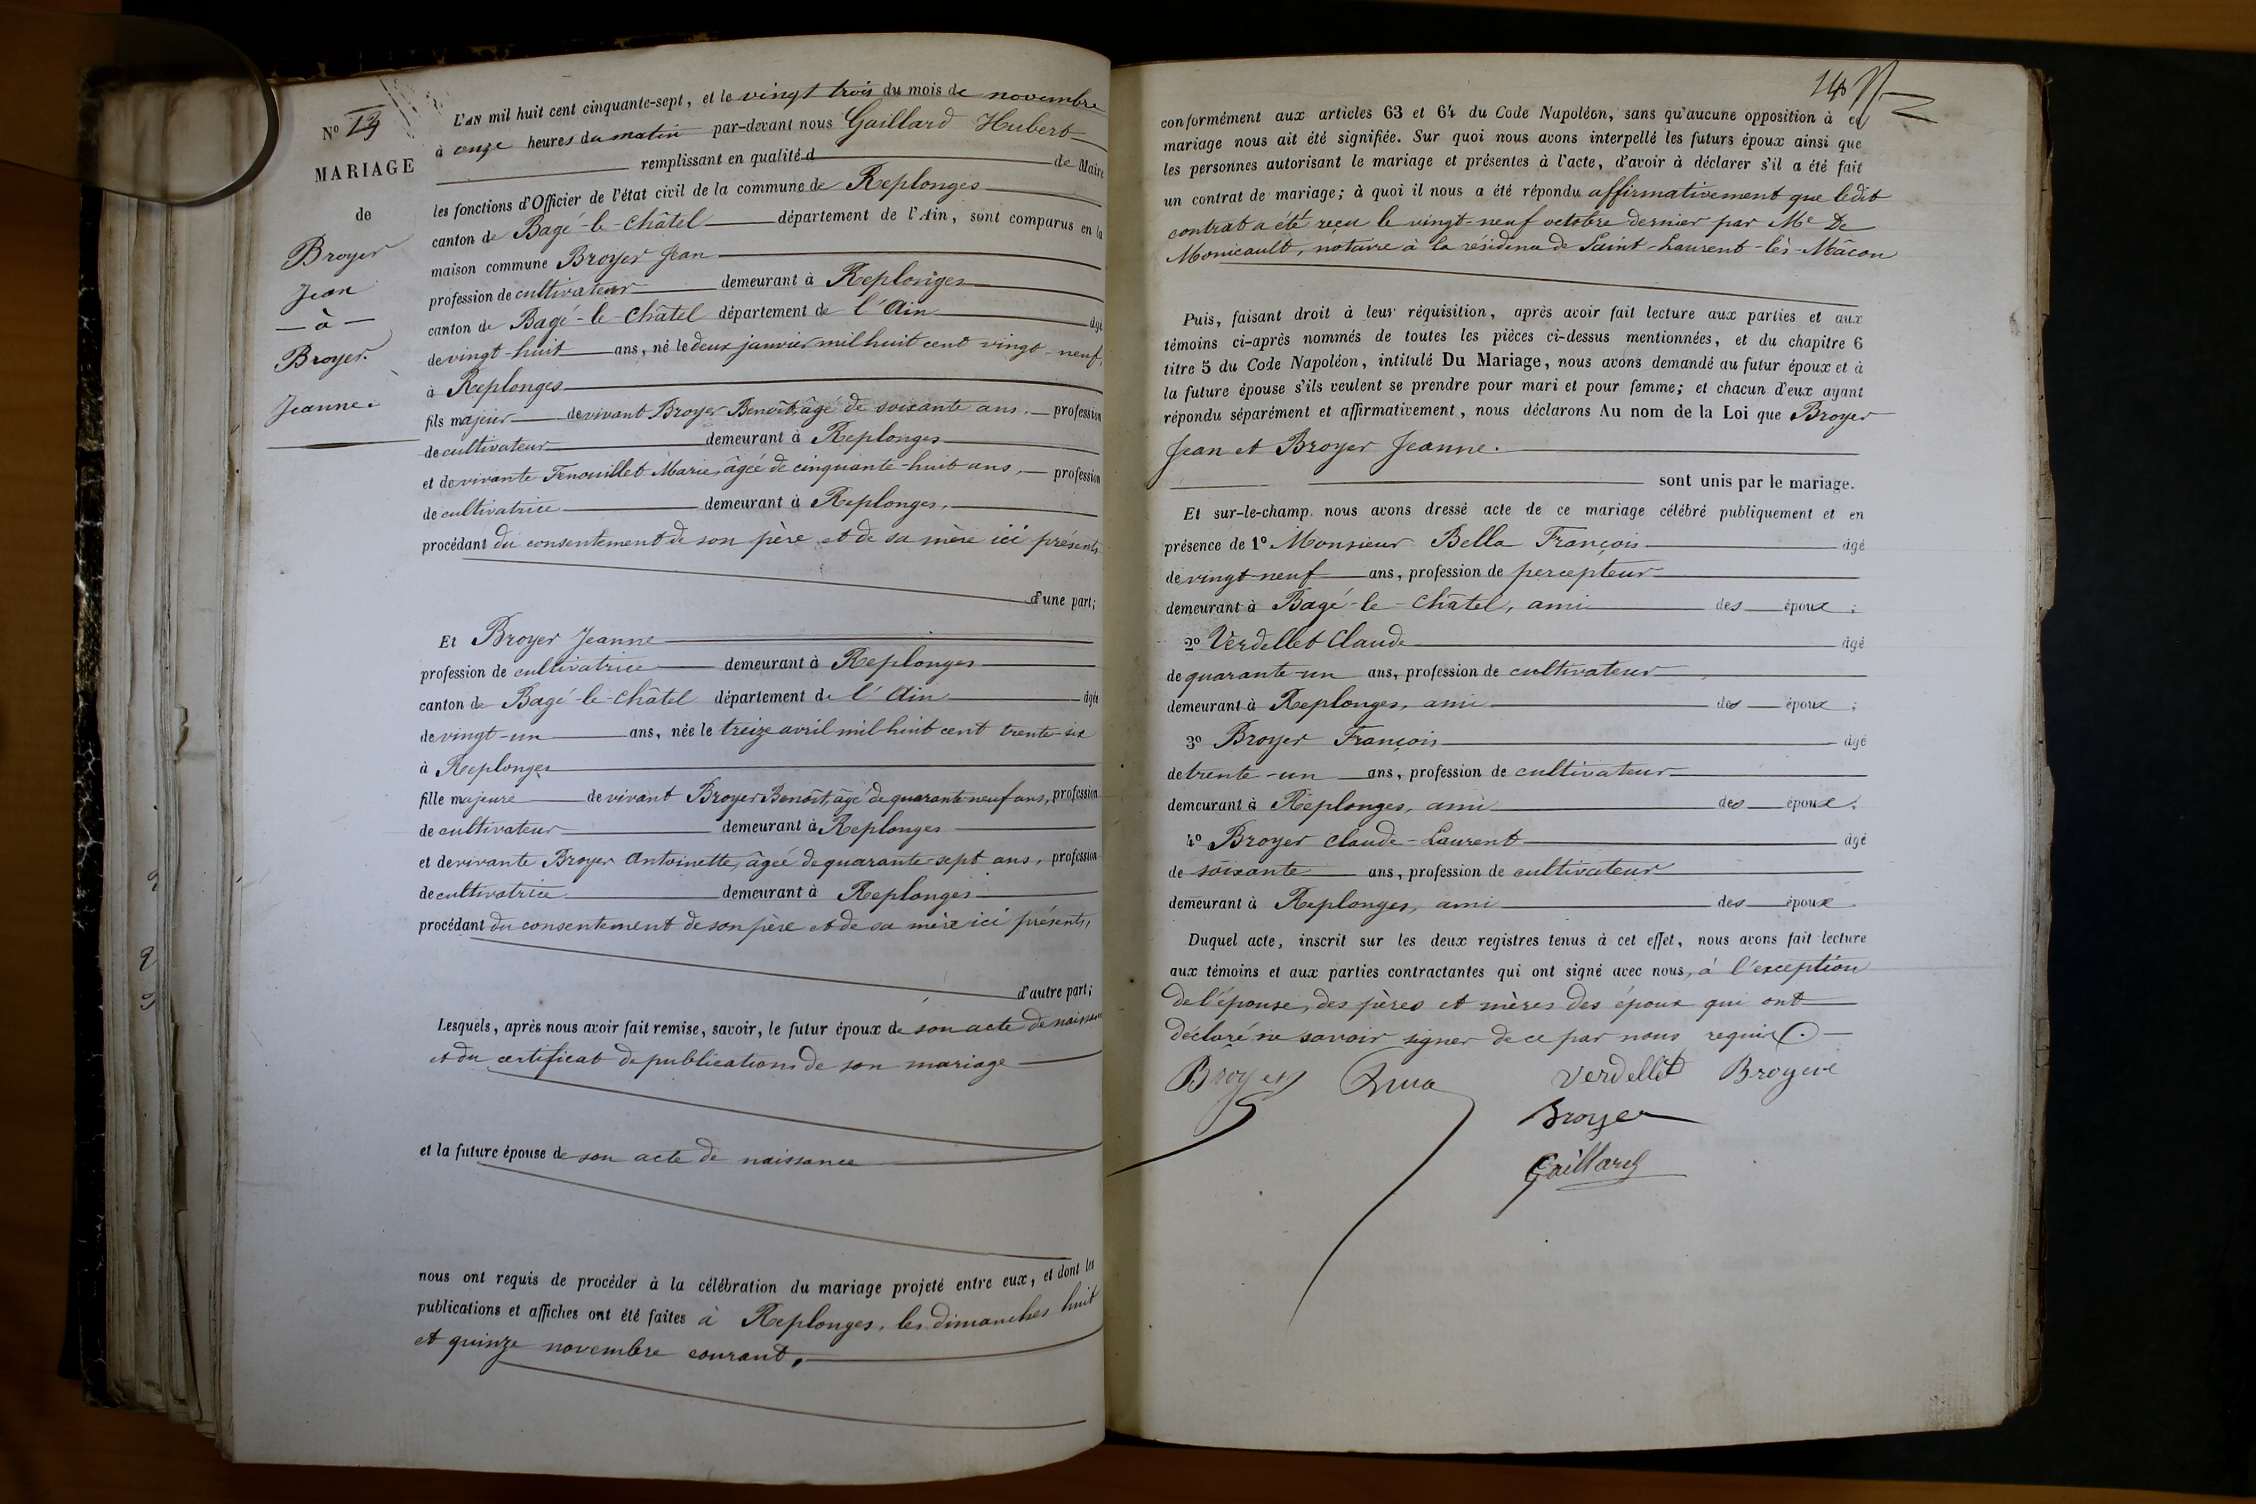 N° 13
MARIAGE
de
Broyer
Jean
— à —
Broyer.
Jeanne.
L'AN mil huit cent cinquante-sept, et le vingt trois du mois de novembre
à onze heures du matin par-devant nous Gaillard Hubert
remplissant en qualité d de Maire
les fonctions d'Officier de l'état civil de la commune de Replonges
canton de Bagé-le-Châtel département de l'Ain, sont comparus en la
maison commune Broyer Jean
profession de cultivateur demeurant à Replonges
canton de Bagé-le-Châtel département de l'Ain âgé
de vingt-huit ans, né le deux janvier mil huit cent vingt-neuf,
à Replonges
fils majeur de vivant Broyer Benoît, âgé de soixante ans. profession
de cultivateur demeurant à Replonges
et de vivante Fenouillet Marie, âgée de cinquante-huit ans, profession
de cultivatrice demeurant à Replonges,
procédant du consentement de son père et de sa mère ici présents
d'une part;
Et Broyer Jeanne
profession de cultivatrice demeurant à Replonges
canton de Bagé-le-Châtel département de l'Ain âgée
de vingt-un ans, née le treize avril mil huit cent trente-six
à Replonges
fille majeure de vivant Broyer Benoît, âgé de quarante neuf ans, profession
de cultivateur demeurant à Replonges
et de vivante Broyer Antoinette, âgée de quarante-sept ans, profession
de cultivatrice demeurant à Replonges
procédant du consentement de son père et de sa mère ici présents,
d'autre part;
Lesquels, après nous avoir fait remise, savoir, le futur époux de son acte de naissance
et du certificat de publications de son mariage
et la future épouse de son acte de naissance
nous ont requis de procéder à la célébration du mariage projeté entre eux, et dont les
publications et affiches ont été faites à Replonges, les dimanches huit
et quinze novembre courant,
14
conformément aux articles 63 et 64 du Code Napoléon, sans qu'aucune opposition à ce
mariage nous ait été signifiée. Sur quoi nous avons interpellé les futurs époux ainsi que
les personnes autorisant le mariage et présentes à l'acte, d'avoir à déclarer s'il a été fait
un contrat de mariage; à quoi il nous a été répondu affirmativement que ledit
contrat a été reçu le vingt-neuf octobre dernier par Me De
Monicault, notaire à la résidence de Saint-Laurent-lès-Mâcon
Puis, faisant droit à leur réquisition, après avoir fait lecture aux parties et aux
témoins ci-après nommés de toutes les pièces ci-dessus mentionnées, et du chapitre 6
titre 5 du Code Napoléon, intitulé Du Mariage, nous avons demandé au futur époux et à
la future épouse s'ils veulent se prendre pour mari et pour femme; et chacun d'eux ayant
répondu séparément et affirmativement, nous déclarons Au nom de la Loi que Broyer
Jean et Broyer Jeanne.
sont unis par le mariage.
Et sur-le-champ, nous avons dressé acte de ce mariage célébré publiquement et en
présence de 1° Monsieur Bella François âgé
de vingt-neuf ans, profession de percepteur
demeurant à Bagé-le-Châtel, ami des époux;
2° Verdellet Claude âgé
de quarante-un ans, profession de cultivateur
demeurant à Replonges, ami des époux;
3° Broyer François âgé
de trente-un ans, profession de cultivateur
demeurant à Replonges, ami des époux;
4° Broyer Claude-Laurent âgé
de soixante ans, profession de cultivateur
demeurant à Replonges, ami des époux
Duquel acte, inscrit sur les deux registres tenus à cet effet, nous avons fait lecture
aux témoins et aux parties contractantes qui ont signé avec nous, à l'exception
de l'épouse, des pères et mères des époux qui ont
déclaré ne savoir signer de ce par nous requis.
Broyer Verdellet Broyer
Broyer
Gaillard